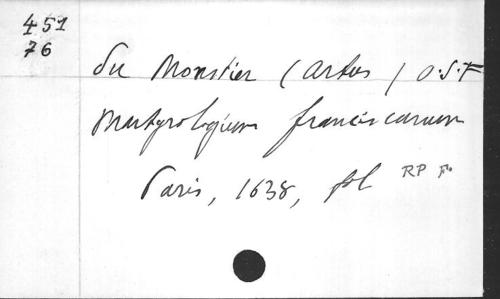 451
76
du Monstier (Artus) O.S.F
Martyrologium franciscanum
Paris, 1638, fol RP Fo